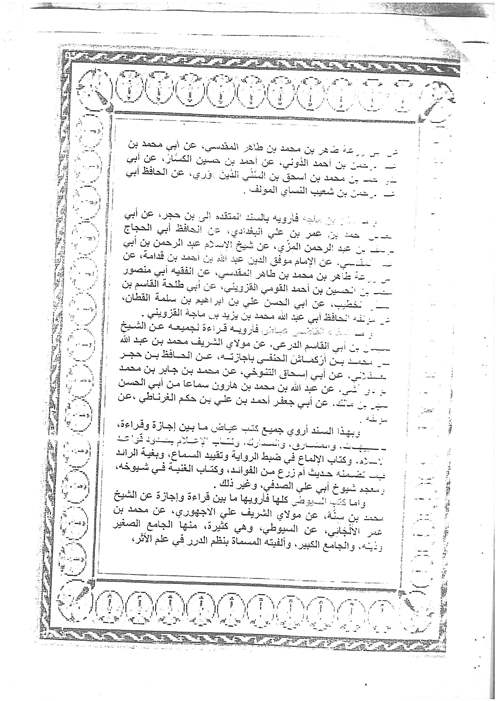 زرعة طاهر بن محمد بن طاهر المقدسي، عن أبي محمد بن
الرحمن بن أحمد الدوني، عن احمد بن حسين الكسار، عن أبي
بن محمد بن اسحق بن المثنى الدين وري، عن الحافظ أبي
الرحمن بن شعيب النساي المولف .
بن ماجة فارويه بالسند المتقدم الى بن حجر، عن أبي
حمد بن عمر بن علي البغدادي، عن الحافظ أبي الحجاج
يوسف بن عبد الرحمن المزي، عن شيخ الاسلام عبد الرحمن بن أبي
المقدسي، عن الإمام موفق الدين عبد الله بن أحمد بن قدامة، عن
زرعة طاهر بن محمد بن طاهر المقدسي، عن الفقيه أبي منصور
بن الحسين بن أحمد القومي القزويني، عن أبي طلحة القاسم بن
الخطيب، عن أبي الحسن علي بن ابراهيم بن سلمة القطان،
عن مؤلفه الحافظ أبي عبد الله محمد بن يزيد بن ماجة القزويني .
القاضي عياض فأرويه قراءة لجميعه عن الشيخ
بن أبي القاسم الدرعي، عن مولاي الشريف محمد بن عبد الله
محمد بن أركماش الحنفي بأجازته، عن الحافظ بن حجر
العسقلاني، عن أبي إسحاق التنوخي، عن محمد بن جابر بن محمد
، عن عبد الله بن محمد بن هارون سماعا من أبي الحسن
سهل بن مالك، عن أبي جعفر أحمد بن علي بن حكم الغرناطي ،عن
مؤلفه .
وبهذا السند أروي جميع كتب عياض ما بين إجازة وقراءة،
والمشارق، والمدارك، وكتاب الإعلام بحدود قواعد
الاسلام، وكتاب الالماع في ضبط الرواية وتقييد السماع، وبغية الرائد
فيما تضمنه حديث أم زرع من الفوائد، وكتاب الغنية في شيوخه،
ومعجم شيوخ أبي علي الصدفي، وغير ذلك .
واما كتب السيوطي كلها فأرويها ما بين قراءة وإجازة عن الشيخ
محمد بن سنة، عن مولاي الشريف علي الاجهوري، عن محمد بن
عمر الألجاني، عن السيوطي، وهي كثيرة، منها الجامع الصغير
وذيله، والجامع الكبير، وألفيته المسماة بنظم الدرر في علم الأثر،